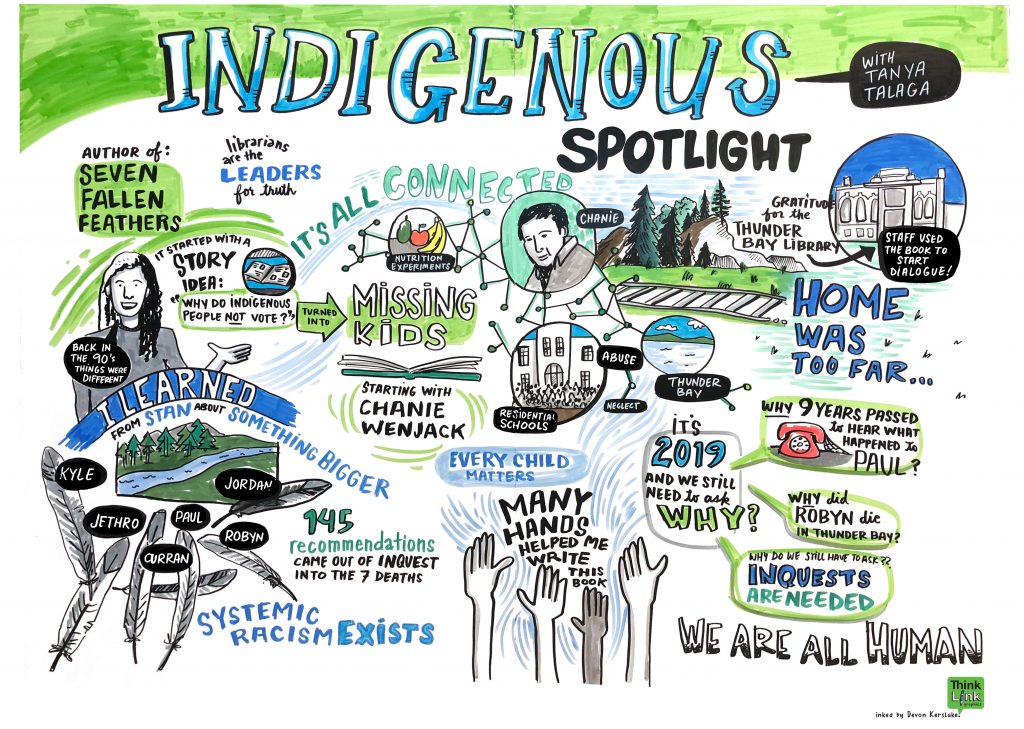 INDIGENOUS
SPOTLIGHT
WITH
TANYA
TALAGA
AUTHOR of:
SEVEN
FALLEN
FEATHERS
librarians
are the
LEADERS
for truth
IT STARTED WITH A
STORY
IDEA:
"WHY DO INDIGENOUS
PEOPLE NOT VOTE?"
TURNED
INTO
MISSING
KIDS
STARTING WITH
CHANIE
WENJACK
BACK IN
THE 90's
THINGS WERE
DIFFERENT
I LEARNED
FROM STAN ABOUT SOMETHING BIGGER
KYLE
JORDAN
JETHRO
PAUL
CURRAN
ROBYN
145
recommendations
CAME OUT OF INQUEST
INTO THE 7 DEATHS
SYSTEMIC
RACISM EXISTS
IT'S ALL CONNECTED
NUTRITION
EXPERIMENTS
CHANIE
RESIDENTIAL
SCHOOLS
ABUSE
NEGLECT
THUNDER
BAY
GRATITUDE
for the
THUNDER
BAY LIBRARY
STAFF USED
THE BOOK TO
START
DIALOGUE!
HOME
WAS
TOO FAR...
EVERY CHILD
MATTERS
MANY
HANDS
HELPED ME
WRITE
THIS
BOOK
IT'S
2019
AND WE STILL
NEED to ask
WHY?
WHY 9 YEARS PASSED
to HEAR WHAT
HAPPENED to
PAUL?
WHY did
ROBYN die
IN THUNDER BAY?
WHY DO WE STILL HAVE TO ASK??
INQUESTS
ARE NEEDED
WE ARE ALL HUMAN
Think
Link
graphics
inked by Devon Kerslake.